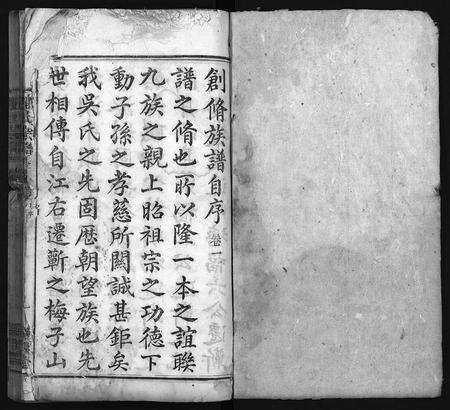 創脩族譜自序 卷一
譜之脩也所以隆一本之誼聯
九族之親上昭祖宗之功德下
動子孫之孝慈所関誠甚鉅矣
我吳氏之先固歴朝望族也先
世相傳自江右遷蘄之梅子山